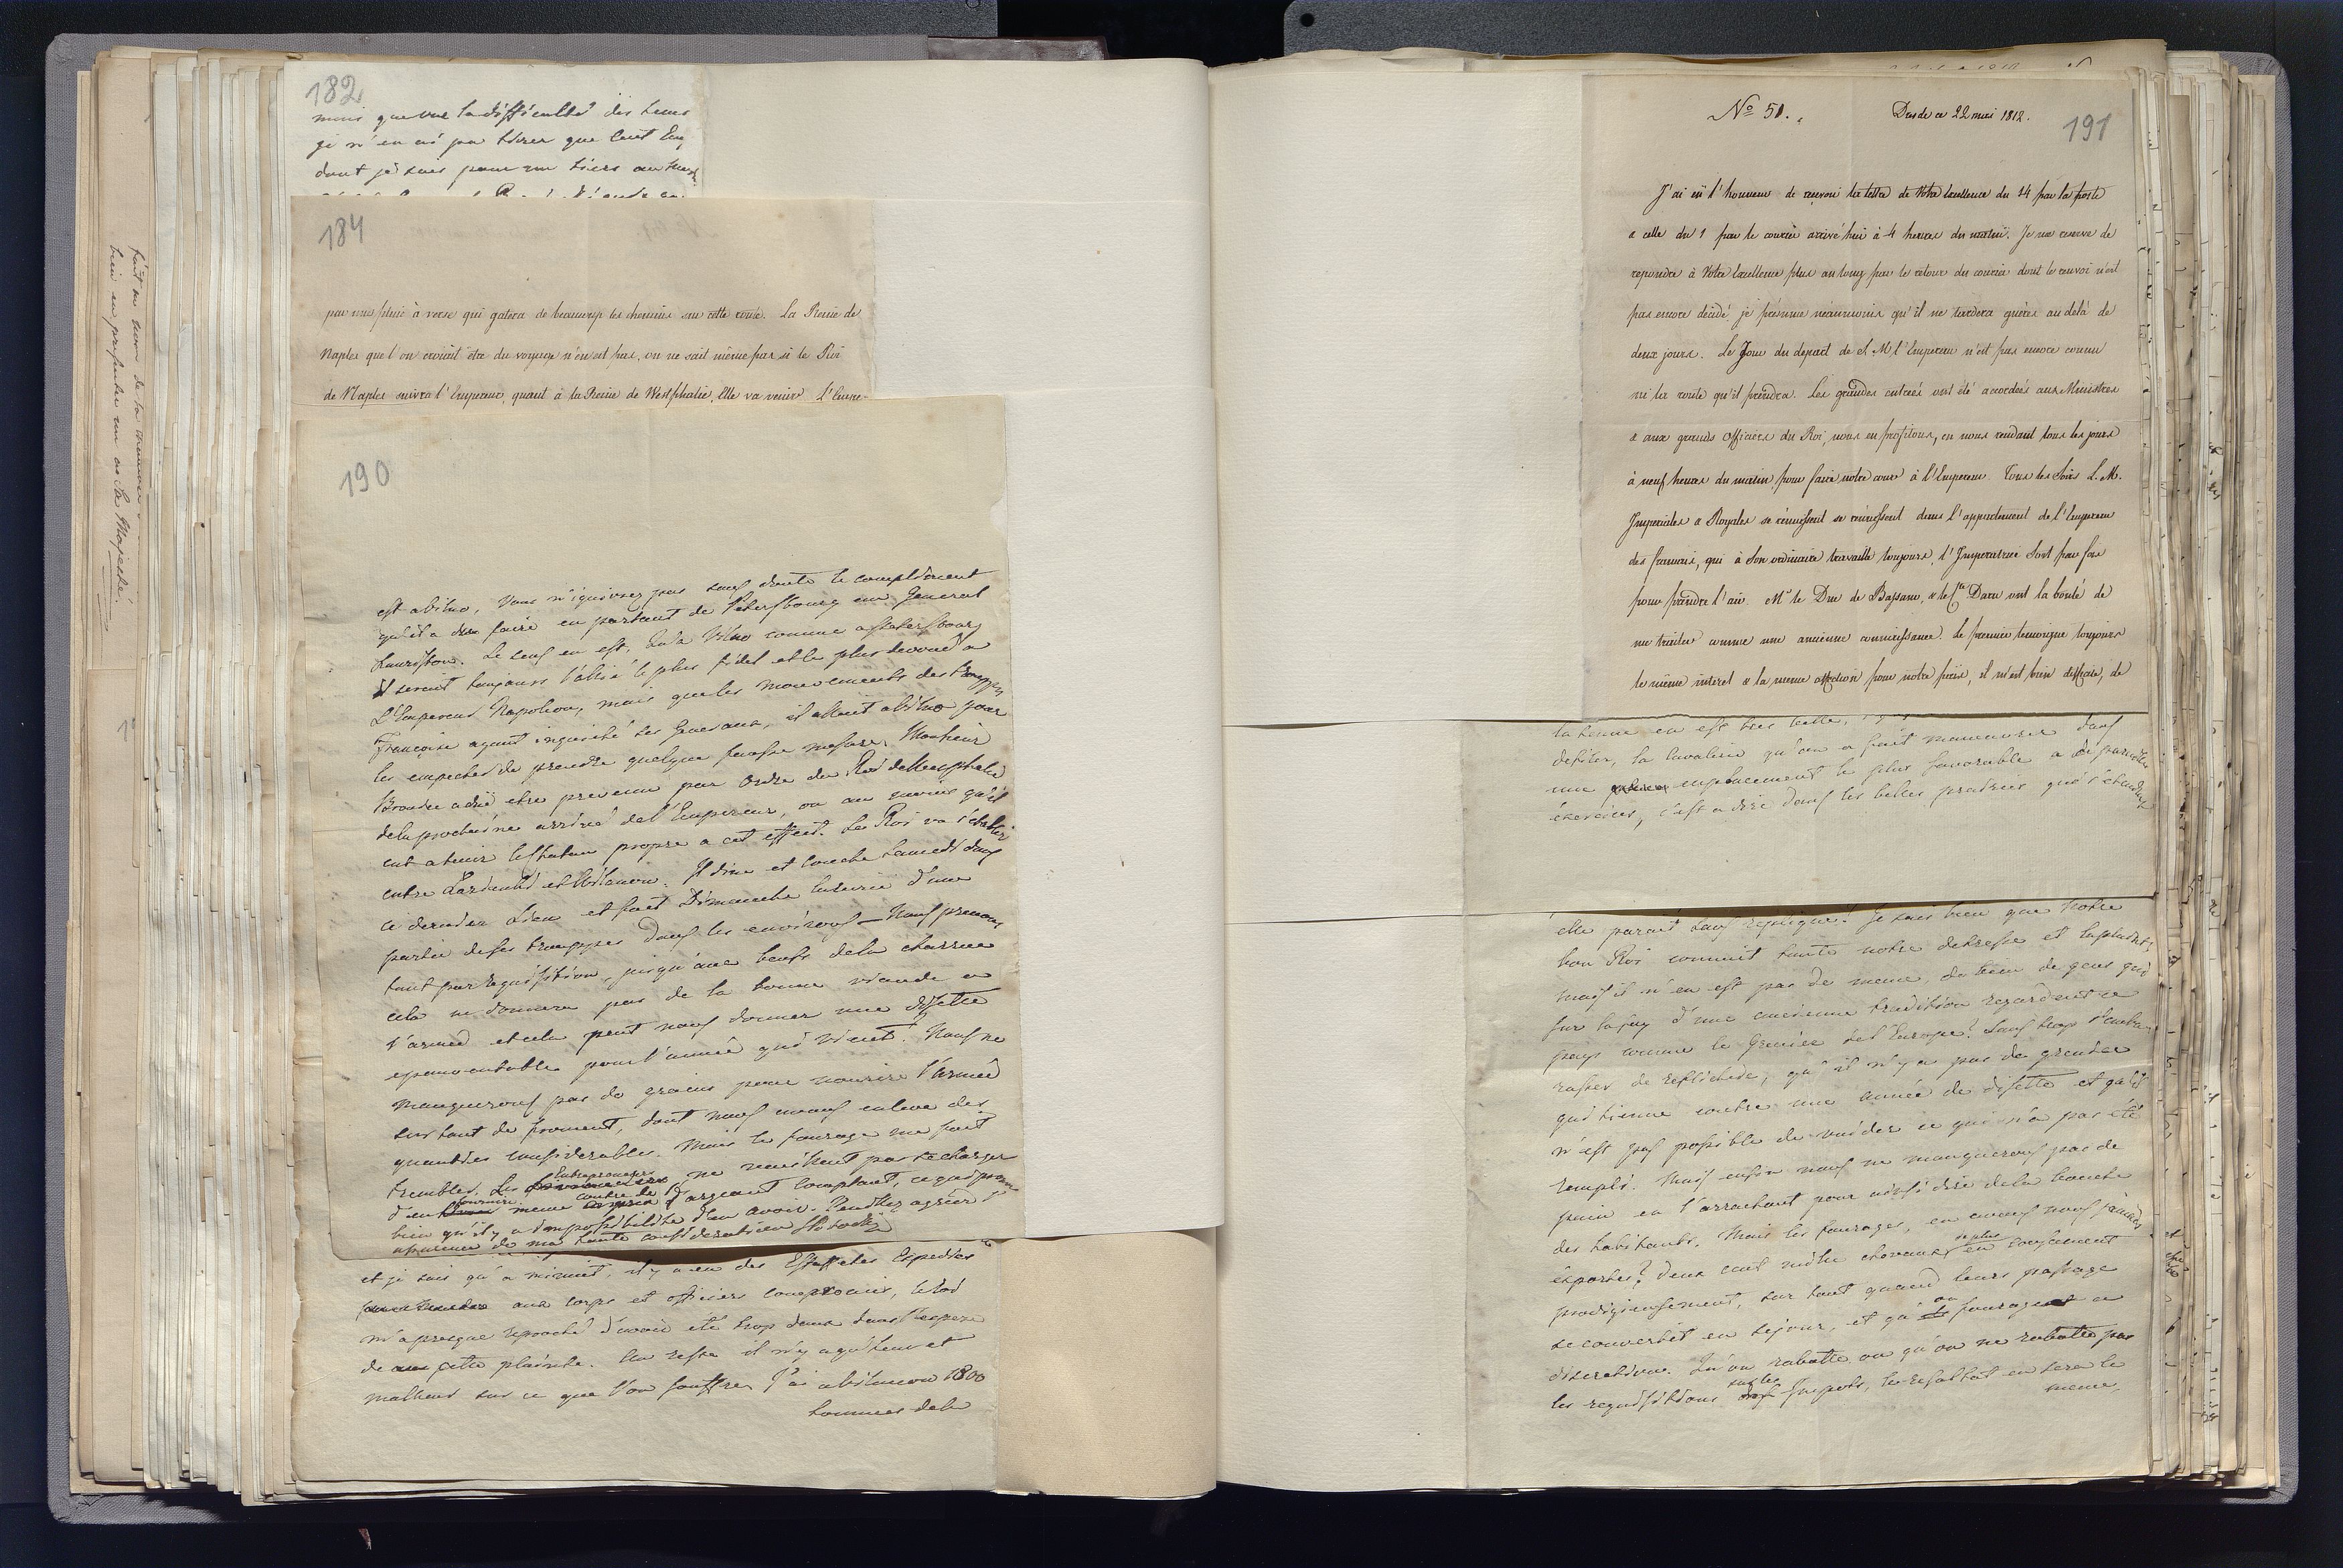 182
mais que vue la difficulté des tems
je n'en ai pu tirer que cent
dont je suis pour un tiers au
184
par une pluie à verse qui gatera de beaucoup les chemins sur cette route. La Reine de
Naples que l'on croiait être du voyage n'en est pas, on ne sait même pas si le Roi
de Naples suivra l'Empereur, quant à la Reine de Westphalie, Elle va venir. L'Empe-
190
est a Vilna, Vous n'ignorez pas sans doute le compliment
qu'il a du faire en partant de Petersbourg au General
Lauriston. Le sens en est, qu'a Vilna comme a Petersbourg
il seroit toujours l'allié le plus fidel et le plus devoué a
L'Empereur Napoleon, mais que les mouvements des trouppes
Françoise ayant inquieté ses Generaux, il alloit a Vilna pour
les empecher de prendre quelque fausse mesure. Monsieur
etre prevenu par Ordre du Roi de Westphalie
de la prochaine arrivée de l'Empereur, ou au moins qu'il
eut a tenir propre a cet effect. Le Roi va s'etablir
entre et Vilanow. Il dine et couche Samedi dans
ce dernier Lieu et fait Dimanche la revue d'une
partie de ses trouppes dans les environs — Nous prenons
tout par requisition, jusqu'aux beufs de la charrue
cela ne donnera pas de la bonne viande a
l'armée et cela peut nous donner une disette
epouvantable pour l'année qui vient. Nous ne
manquerons pas de grains pour nourir l'armée
sur tout de froment, dont nous avons enlevé des
quantités considerables. Mais le fourage me fait
trembler. Les Entrepreneurs ne veuillent pas se charger
d'en fournir meme contre de l'argeant comptant, ce qui prouve
bien qu'il y a impossibilité d'en avoir. Veuillez agréer l'
assurance de ma haute consideration
et je sais qu'a minuit, il y a eu des Estaffettes Expediés
aux corps et officiers compromis, le Roi
m'a presque reproché d'avoir été trop doux dans l'expose
de cette plainte. Au reste il n'y a qu'heur et
malheur sur ce que l'on souffre. J'ai a Vilanow 1800
hommes de la
faut au nom de la
bien en presenter un au Sa Majesté.
No 50. Dresde ce 22 mai 1812.
191
J'ai eü l'honneur de recevoir la lettre de Votre Excellence du 14 par la poste
& celle du 1 par le courier arrivé hui à 4 heures du matin. Je me reserve de
repondre à Votre Excellence plus au long par le retour du courier dont le renvoi n'est
pas encore décidé, je présume néanmoins qu'il ne tardera guères au delà de
deux jours. Le Jour du depart de S. M l'Empereur n'est pas encore connu
ni la route qu'il prendra. Les grandes entrées ont été accordées aux Ministres
& aux grands Officiers du Roi, nous en profitons, en nous rendant tous les jours
à neuf heures du matin pour faire notre cour à l'Empereur. Tous les Soirs L. M.
Imperiales & Royales se réunissent se réunissent dans l'appartement de l'Empereur
des français, qui à Son ordinaire travaille toujours, l'Imperatrice Sort par fois
pour prendre l'air. Mr le Duc de Bassano, & le Cte Daru ont la bonté de
me traiter comme une ancienne connoissance. Le premier temoigne toujours
le même interet & la meme affection pour nôtre païs, il m'est bien difficile, de
la tenue en est tres belle,
defiler, la Cavalerie qu'on a fait manouvrer dans
une emplacement le plus favorable a de pareilles
exercices, c'est a dire dans les belles prairies qui s'etendent
elle parait sans replique! Je sais bien que Notre
bon Roi connait toute notre detresse et
mais il n'en est pas de meme, de bien de gens qui
sur la foy d'une ancienne tradition regardent ce
pays comme le Grenier de l'Europe! Sans trop s'embar-
rasser de reflechire, qu'il n'y a pas de grenier
qui tienne contre une année de disette et qu'il
n'est pas possible de vuider ce qui n'a pas été
rempli. Mais enfin nous ne manquerons pas de
pain en l'arrachant pour ainsi dire de la bouche
des habitants. Mais les fourages, en avons nous jamais
exportés? Deux cent mille chevaux de plus en consoment
prodigieusement, sur tout quand leurs passage
se convertit en sejour, et qu'on fourage a
discretion. Qu'on rabatte ou qu'on ne rabatte pas
les requisitions sur les Impots, le resultat en sera le
meme,